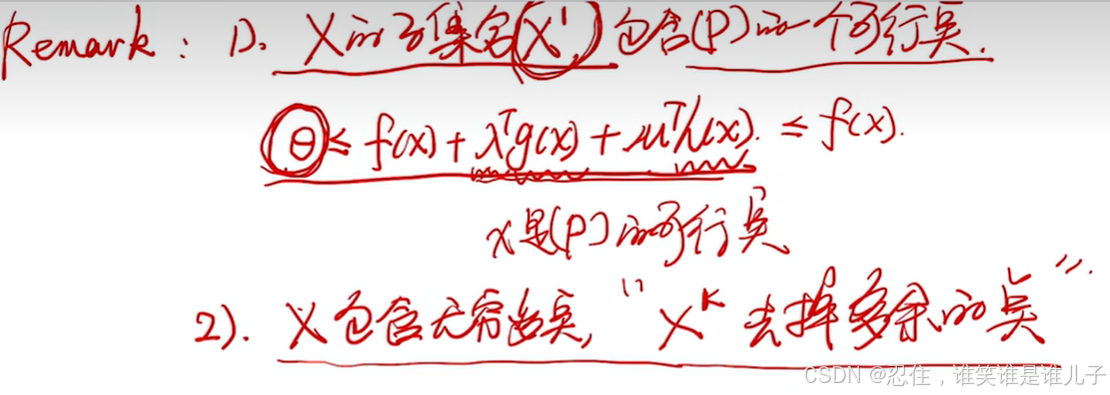 Remark: 1). X的子集合(X¹) 包含(P)的一个可行点.
θ ≤ f(x) + λᵀg(x) + μᵀh(x). ≤ f(x).
x是(P)的可行点
2). X包含无穷多点, "Xᴷ 去掉多余的点".
CSDN @忍住，谁笑谁是谁儿子